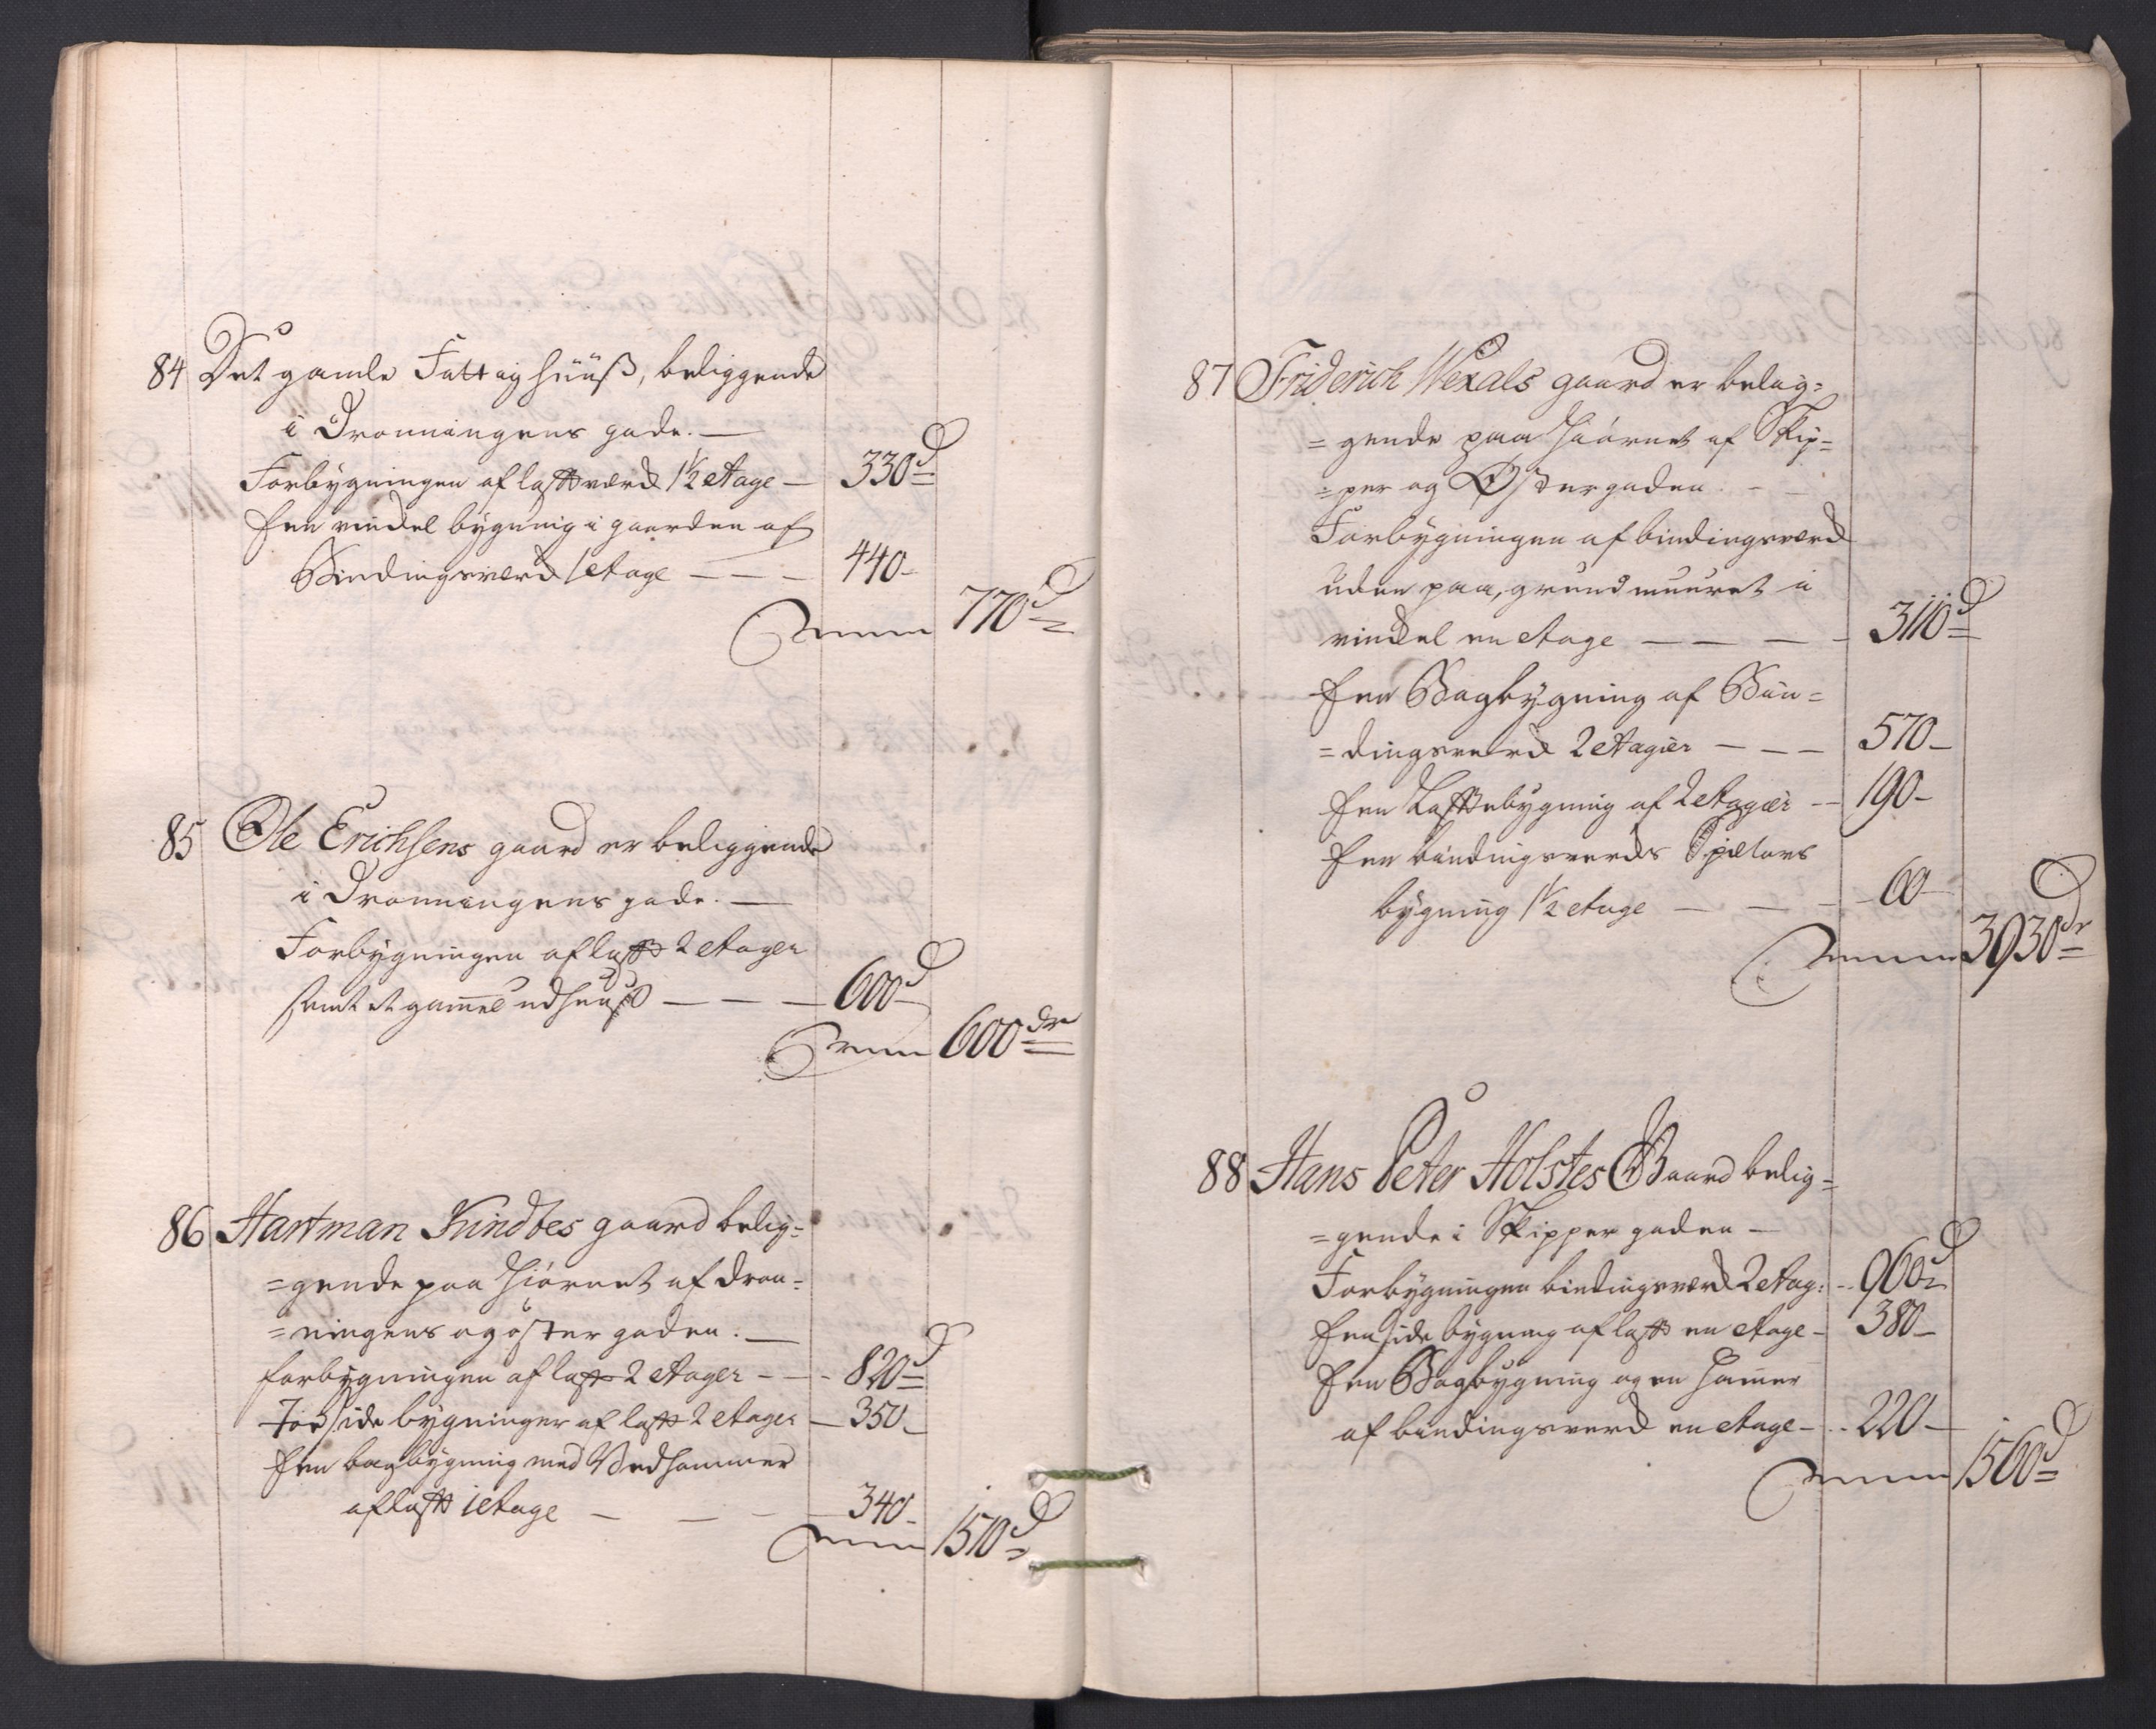 84 Det gamle Fattighüüß, beliggende
i Dronningens gade. —
Forbygningen af laftværd 1½ Etage — 330 d
Een vinckel bygning i gaarden af
Bindingsværd 1 Etage — — — 440 -
Summa 770 d
85 Ole Erichsens gaard er beliggende
i Dronningens gade. —
Forbygningen af laft 2 Etager
samt et gammel udhuus — — — 600 d
Summa 600 dr
86 Hartman Kindtes gaard belig=
=gende paa Hiørnet af dron=
=ningens og øster gaden. —
forbygningen af laft 2 Etager - - - 820 d
Toe side bygninger af laft 2 Etager — 350 -
Een bagbygning med Vedhammer
af laft 1 Etage — — — 340 -
Summa 1510 d
87 Friderich Wexals gaard er belig=
=gende paa Hiørnet af Skip=
=per og Østergaden. -
Forbygningen af bindingsværd
uden paa, grundmuuret i
vinckel en Etage — — — — 3110 d
Een Bagbygning af Bin=
=dingsverd 2 Etagier — — — 570 -
Een Lafftebygning af 2 Etagier - - 190 -
Een bindingsverds
bygning 1½ etage — — — 60 -
Summa 3930 dr
88 Hans Peter Holstes Gaard belig=
=gende i Skipper gaden —
Forbygningen bindingsværd 2 Etag: - - 960 d
Een side bygning af laft en Etage - 380 -
Een Bagbygning og en Hammer
af bindingsverd en etage - - - 220 -
Summa 1560 d